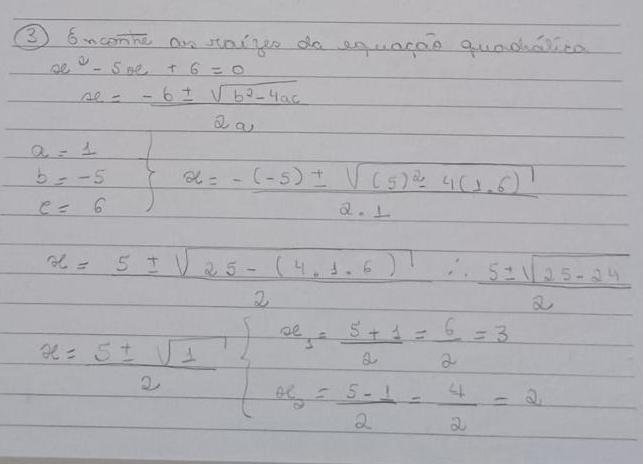 ③ Encontre as raízes da equação quadrática
x² - 5x + 6 = 0
x = -b ± √(b² - 4ac) / 2a
a = 1
b = -5
c = 6
x = -(-5) ± √((5)² - 4(1.6)) / 2.1
x = 5 ± √(25 - (4.1.6)) / 2 ∴ 5 ± √(25 - 24) / 2
x = 5 ± √1 / 2
x₁ = 5 + 1 / 2 = 6 / 2 = 3
x₂ = 5 - 1 / 2 = 4 / 2 = 2